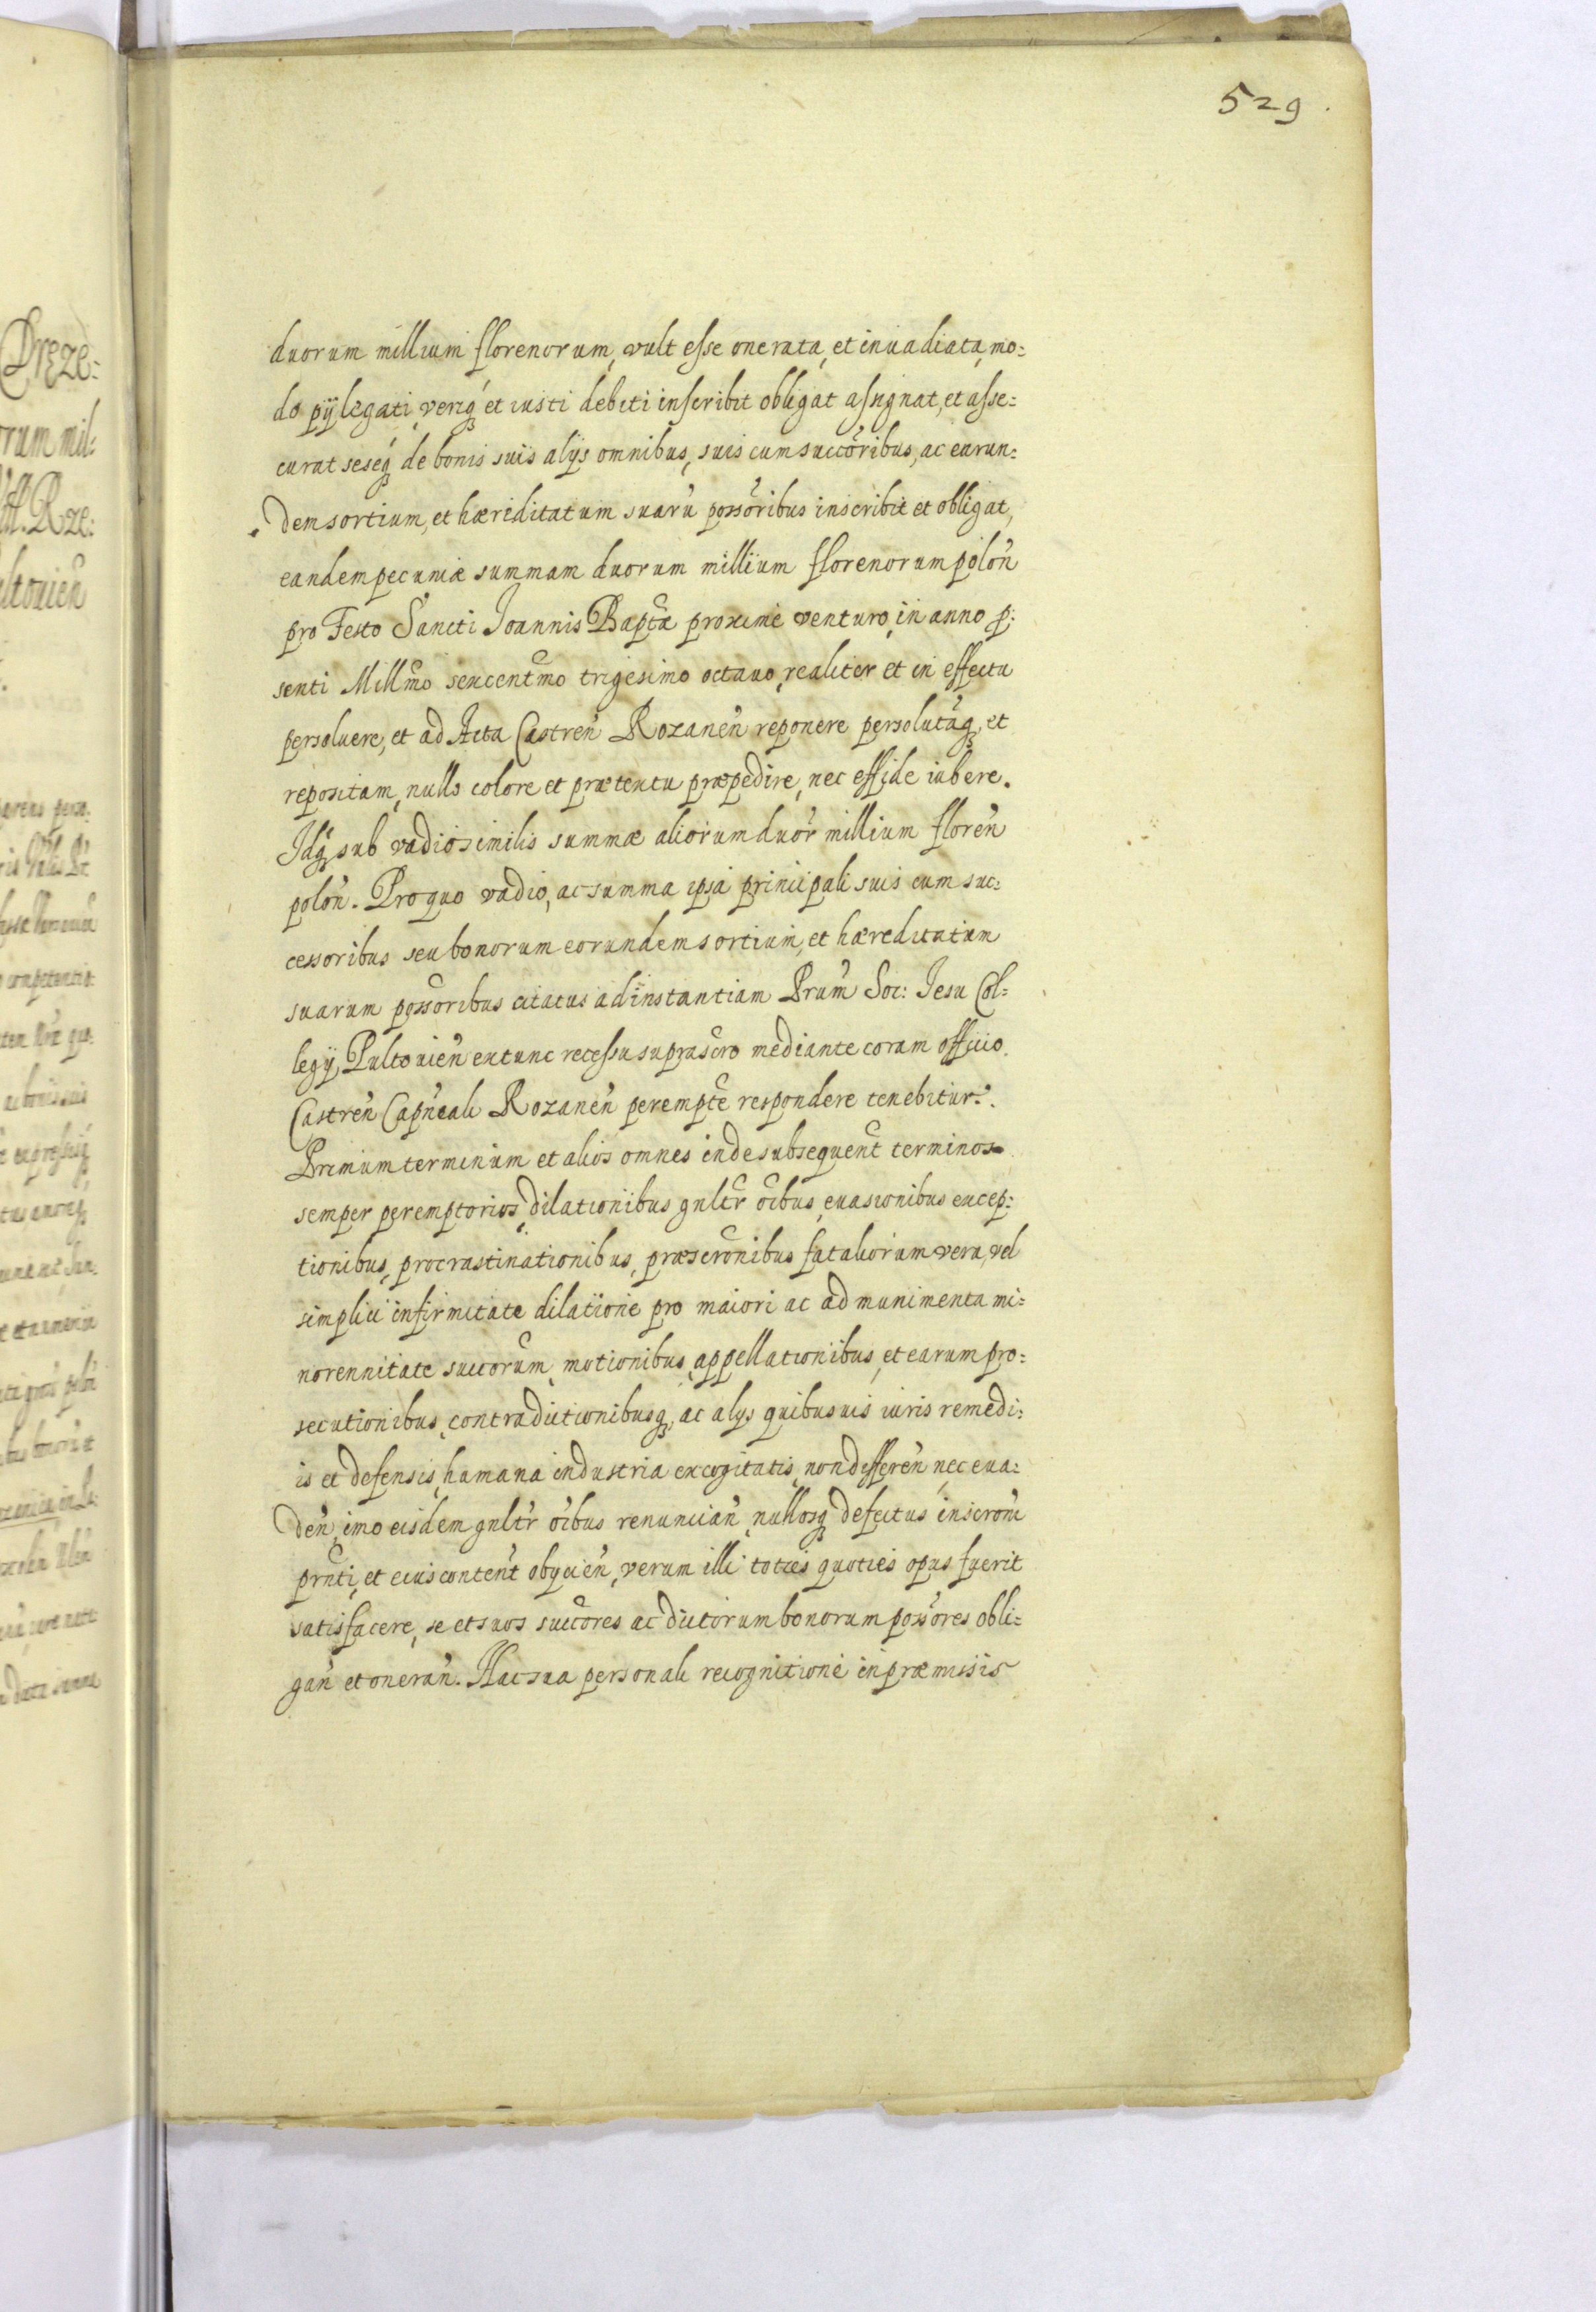 529
duorum millium florenorum, vult esse onerata, et inuadiata, mo:
do pij legati, veriq́ et iusti debiti inscribit obligat assignat, et asse:
curat seseq́ de bonis suis alijs omnibus, suis cum succoribus, ac earun:
dem sortium, et hæriditatum suarū possoribus inscribit et obligat,
eandem pecuniæ summam duorum millium florenorum poloñ
pro Festo Sancti Joannis Baptæ proxime venturo, in anno p:
senti Millmo sexcentmo trigesimo octauo, realiter et in effectu
persoluere, et ad Acta Castreñ Rozaneñ reponere persolutāq́, et
repositam, nullo colore et prætextu præpedire, nec effide iubere.
Idq́ sub vadio similis summæ aliorum duor̃ millium floreñ
poloñ. Pro quo vadio, ac summa ipsa principali suis cum suc:
cessoribus seu bonorum eorundem sortium, et hæreditatum
suarum possoribus citatus ad instantiam Prum̃ Soc: Iesu Col:
legij Pultouieñ extunc recessu suprascro mediante coram officio
Castreñ Capneali Rozaneñ perempte respondere tenebitur.
Primum terminum et alios omnes inde subsequent̃ terminos
semper peremptorios, dilationibus gnltr oibus, euasionibus excep:
tionibus, procrastinationibus, præscronibus fataliorum vera, vel
simplici infirmitate dilatione pro maiori ac ad munimenta mi:
norennitate succorum, motionibus, appellationibus, et earum pro:
secutionibus, contradictionibusq́, ac alys quibusuis iuris remedi:
is et defensis, humana industria excogitatis, non differeñ nec eua:
deñ, imo eisdem gnltr oibus renunciañ, nullosq́ defectus inscroni
prnti, et eius content̃ obycieñ, verum illi toties quoties opus fuerit
satisfacere, se et suos succores ac dictorum bonorum possores obli:
gañ et onerañ. Hac sua personali recognitione in præmisis